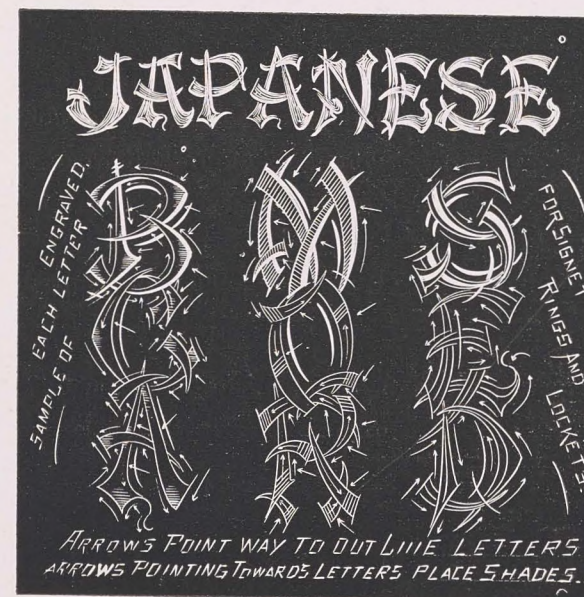 JAPANESE
SAMPLE OF
EACH LETTER
ENGRAVED.
B
A
M
O
R
S
D
FOR SIGNET
RINGS AND
LOCKETS.
ARROWS POINT WAY TO OUT LINE LETTERS
ARROWS POINTING TOWARDS LETTERS PLACE SHADES.